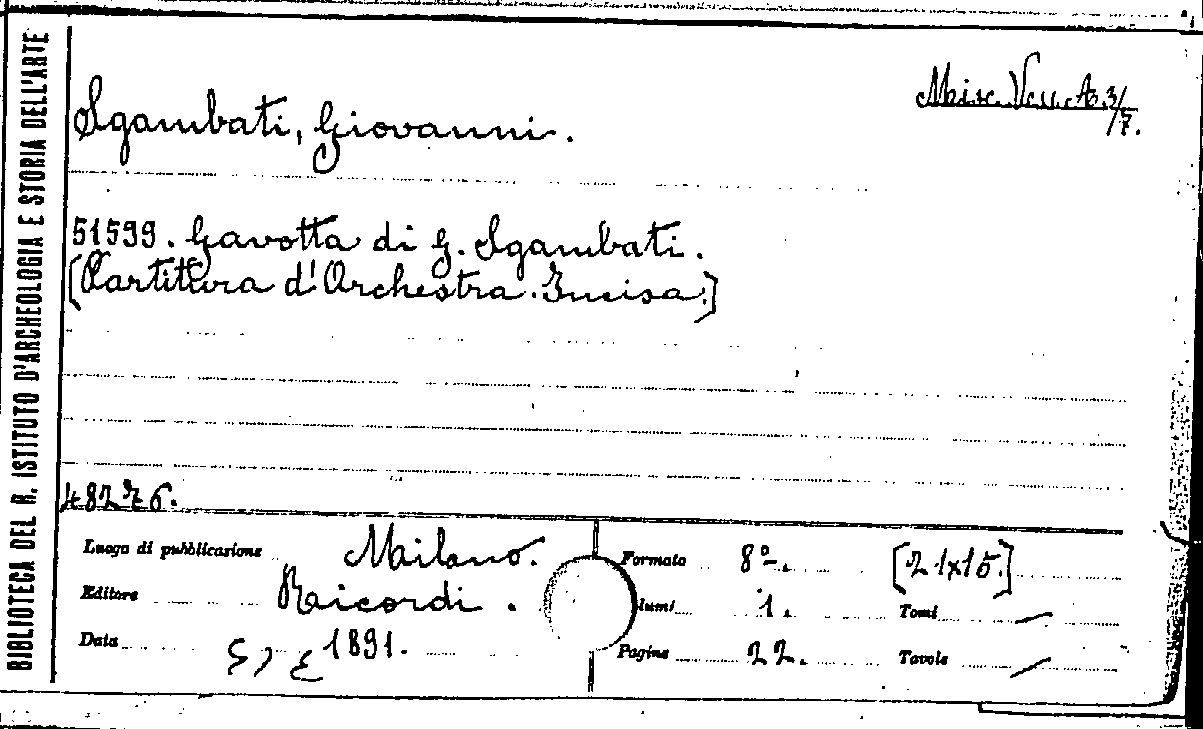 BIBLIOTECA DEL R. ISTITUTO D'ARCHEOLOGIA E STORIA DELL'ARTE
Misc. Vess. A. 3/7.
Sgambati, Giovanni.
51599. Gavotta di G. Sgambati.
[Partitura d'Orchestra. Incisa.]
48276.
Luogo di pubblicazione Milano.
Editore Ricordi.
Data 1891.
Formato 8°. [21x15.]
lumi 1. Tomi /
Pagine 22. Tavole /